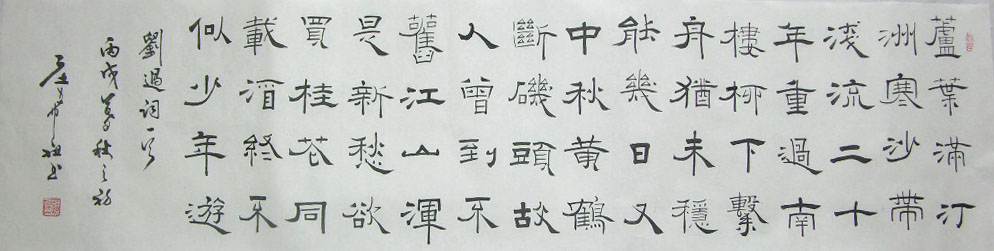 蘆葉滿汀
洲寒沙帶
淺流二十
年重過南
樓柳下繫
舟猶未穩
能幾日又
中秋黃鶴
斷磯頭故
人曾到不
舊江山渾
是新愁欲
買桂花同
載酒終不
似少年遊
劉過詞一首
丙戌暮秋之初